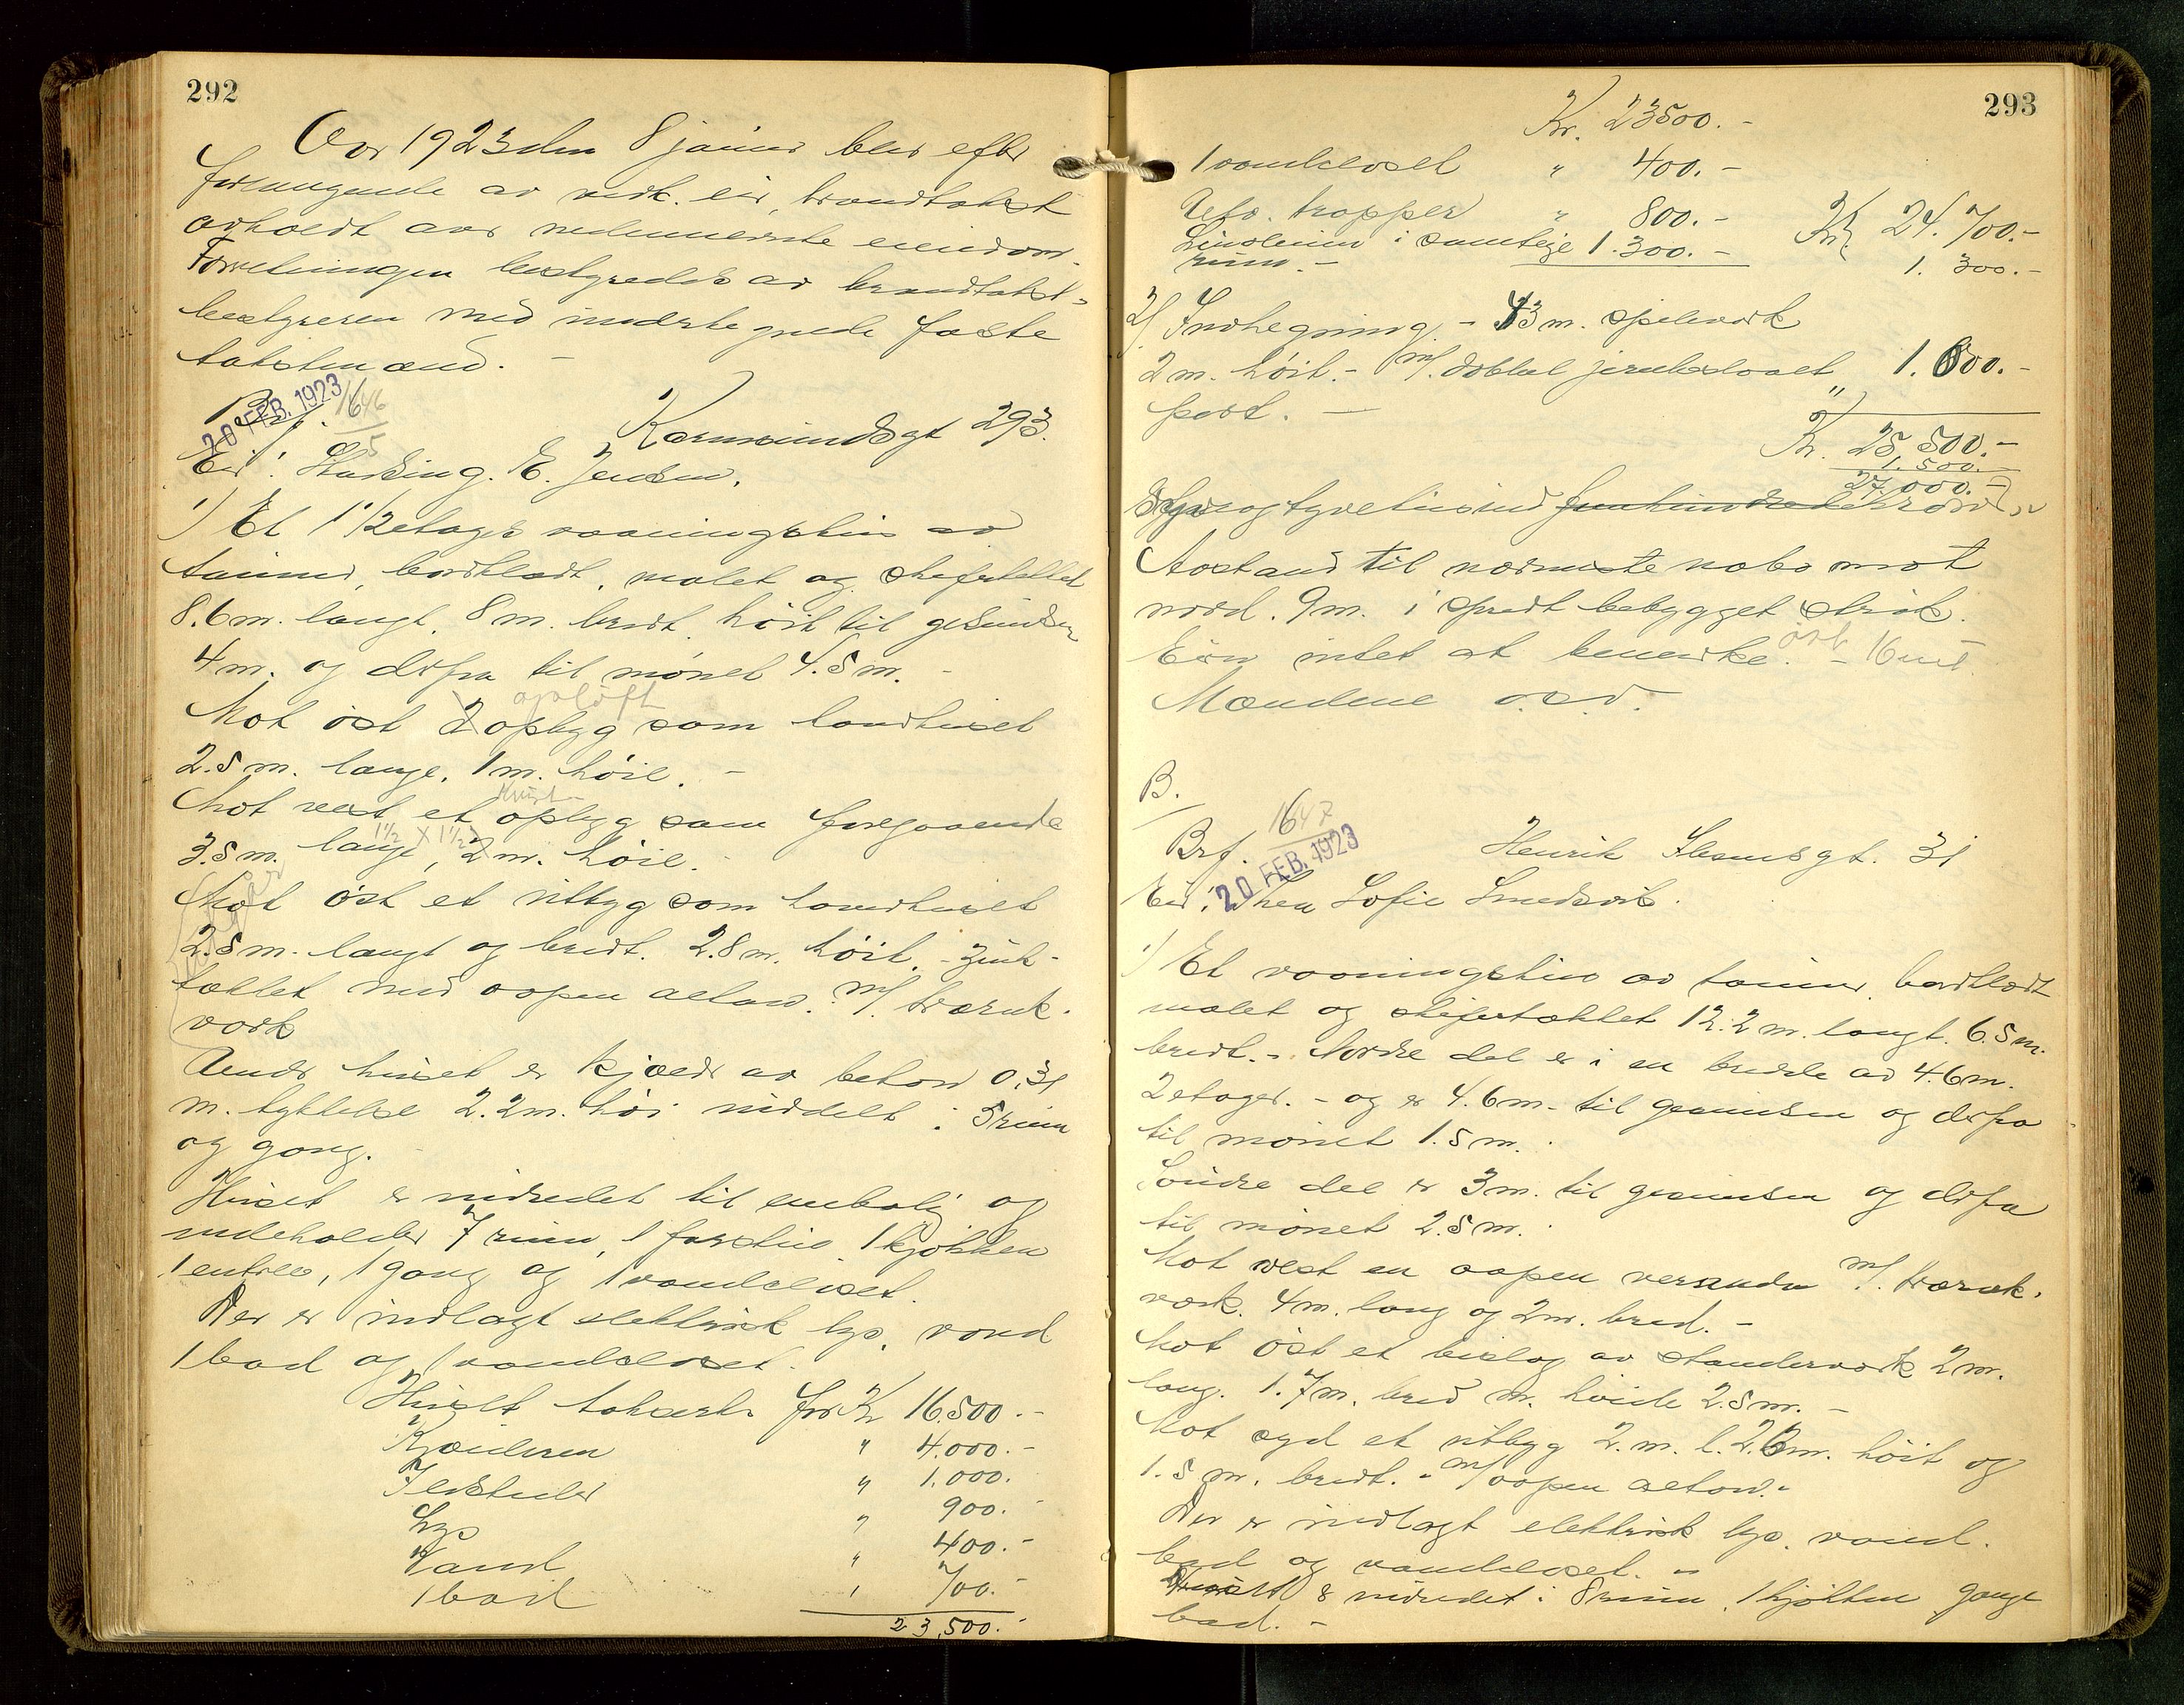 292
Aar 1923 den 8 januar blev efter
forlangende av vedk. eier, brandtakst
avholdt over nedennevnte eiendom.
Forretningen bestyredes av brandtakst-
bestyreren med undertegnede faste
takstmænd. -
Brf. 1646
20 FEB. 1923
5
Karmsundsgt 293.
Eier: Harding. E. Jensen.
1) Et 1 1/2 etages vaaningshus av
tømmer, bordklædt, malet og skifertekket
8.6 m. langt. 8 m. bredt. høit til gesimsen
4 m. og derfra til mønet 4.5 m. -
opløft
Mot øst 2 opbygg som hovedhuset
2.5 m. lange. 1 m. høie. -
Kvist
Mot vest et opbygg som foregaaende
1 1/2 X 1 1/2
3.5 m. lange, 2 m. høie. -
Mot øst et utbygg som hovedhuset
2.5 m. langt og bredt. 2.8 m. høit. - zink-
tekket med aapen altan. m/. træræk-
verk
Under huset er kjælder av beton 0.31
m. tykkelse 2.2 m. høi inddelt i 5 rum
og gang.
Huset er indredet til enebolig og
indeholder 7 rum, 1 forstue 1 kjøkken
1 entree, 1 gang og 1 vandcloset.
Der er indlagt elektrisk lys, vand
1 bad og 1 vandcloset.
Huset takseret for Kr 16.500.-
Kjælderen " 4.000.-
Ildsteder " 1.000.
Lys " 900.-
Vand " 400.-
1 bad " 700.-
23,500.-
293
Kr. 23500.-
1 vandcloset " 400.-
Utv. trapper " 800.- Kr. 24.700.-
Linoleum i samtlige 1.300.- 1.300.-
rum.-
2) Indhegning - 43 m. spilverk
2 m. høit.- m/. dobbel jernbeslaaet " 1.000.-
port. -
Kr. 25,500.-
1.500.-
27,000.-
Syv og tyvetusind femhundrede kroner
Avstand til nærmeste nabo mot
nord. 9 m. i spredt bebygget strøk.
øst
Eieren intet at bemerke. - 16 mt
Mændene o.s.v.
B.
Brf. 1647
20 FEB. 1923
Henrik Ibsensgt. 31
Eier: Thea Sofie Smedsvik.
1) Et vaaningshus av tømmer bordklædt
malet og skifertækket 12.2 m. langt. 6.5 m.
bredt.- Nordre del er i en bredde av 4.6 m.
2 etager. - og er 4.6 m. til gesimsen og derfra
til mønet 1.5 m.
Søndre del er 3 m. til gesimsen og derfra
til mønet 2.5 m.
Mot vest en aapen veranda m/. træræk-
verk. 4 m. lang og 2 m. bred. -
Mot øst et bislag av stenderverk 2 m.
lang. 1.7 m. bred m. høide 2.5 m. -
Mot syd et utbygg 2. m. l. 2.6 m. høit og
1.5 m. bredt. - m/ aapen altan.-
Der er indlagt elektrisk lys. vand.
bad og vandcloset. -
Huset er indredet i 8 rum, 1 kjøkken gange
bad. -